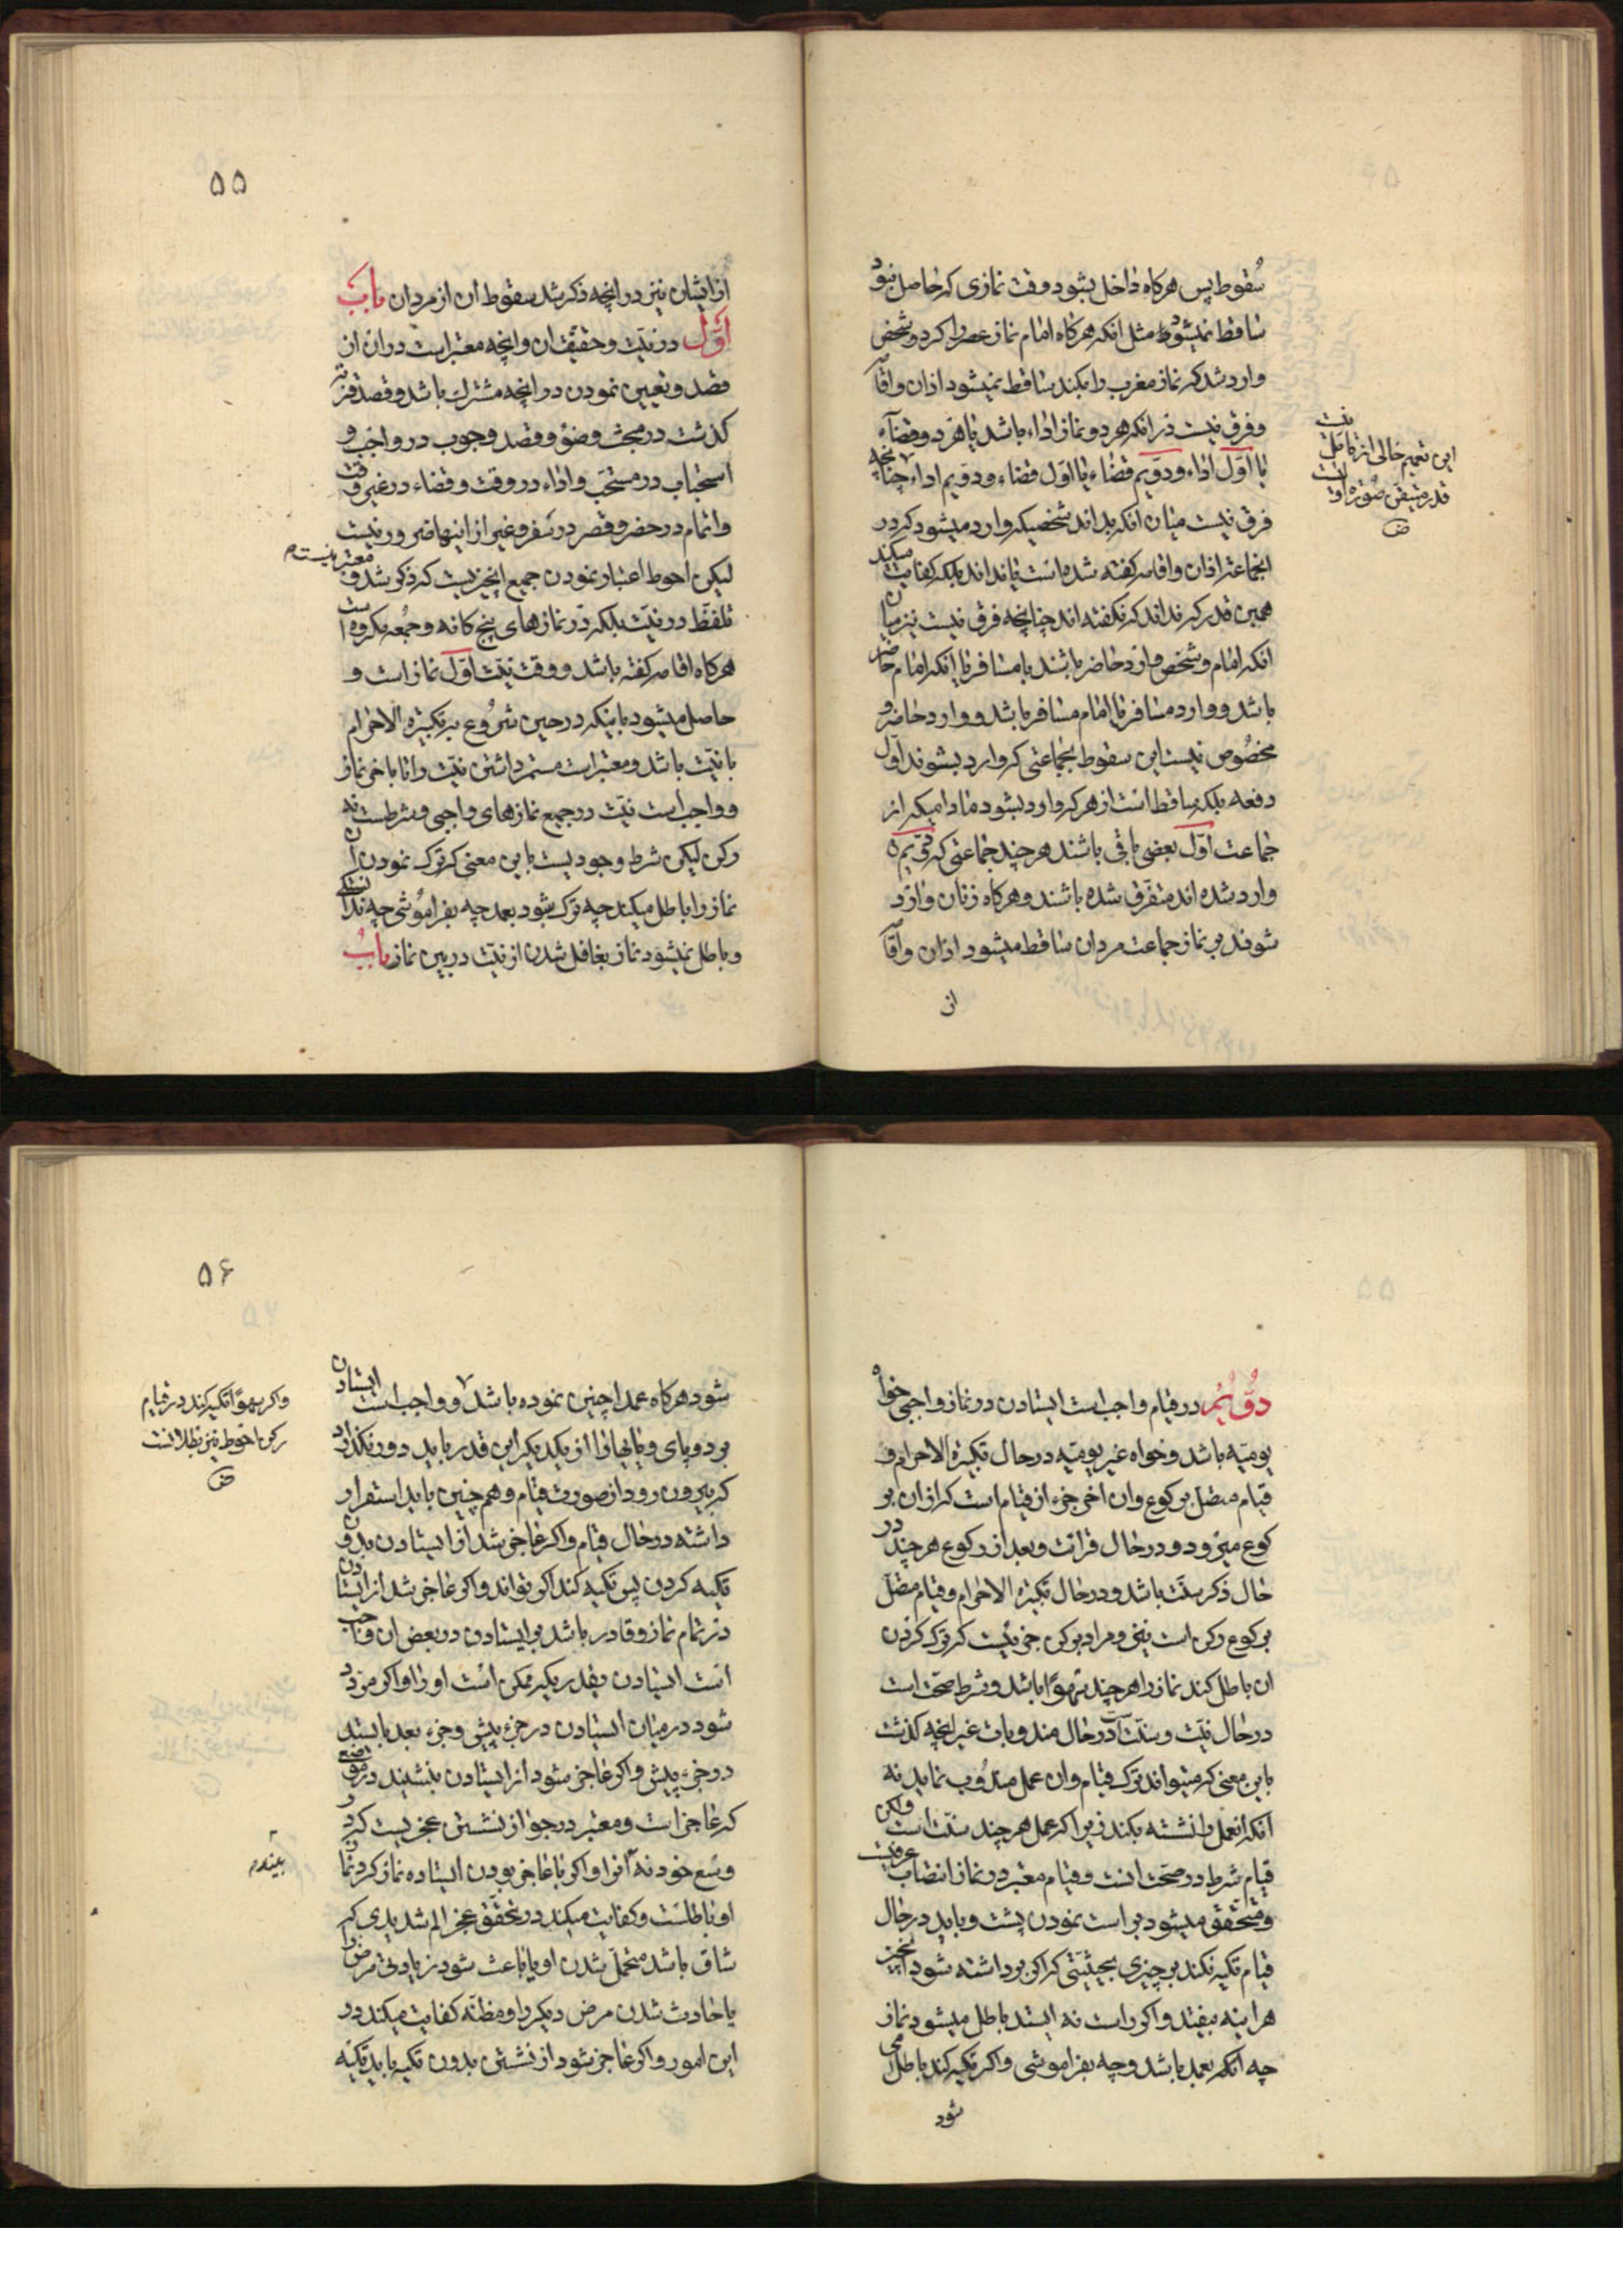 سقوط پس هرکاه داخل بشود وقت نمازی که حاصل نبود
ساقط نمیشود مثل انکه هرکاه امام نماز عصر را کرد و شخص
وارد شد که نماز مغرب را بکند ساقط نمیشود اذان واقامه
وفرق نیست در انکه هر دو نماز اداء باشد یا هر دو قضآء
یا اوّل اداء ودوّیم قضاء یا اوّل قضاء ودوّیم اداء چنانچه
فرق نیست میان انکه بداند شخصیکه وارد میشود که در
انجماعة اذان واقامه کفته شده است یا نداند بلکه کفایت میکند
همین قدر که نداند که نکفته اند چنانچه فرق نیست نیز میان
انکه امام وشخص وارد حاضر باشند یا مسافر یا انکه امام حاضر
باشد ووارد مسافر یا امام مسافر باشد ووارد حاضر و
مخصوص نیست این سقوط بجماعتی که وارد بشوند اوّل
دفعه بلکه ساقط است از هر که وارد بشود مادامیکه از
جماعت اوّل بعضی باقی باشند هر چند جماعتی که دوّیم
وارد شده اند متفرق شده باشند وهرکاه زنان وارد
شوند بر نماز جماعت مردان ساقط میشود اذان واقامه
از
این تعمیم خالی از تامل نیست
قدر متیقن صورة اول است
۵۵
از ایشان نیز در انچه ذکر شد سقوط ان از مردان باب
اوّل در نیّت وحقیقة ان وانچه معتبر است در ان از
قصد وتعیین نمودن در انچه مشترک باشد وقصد قربة
کذشت در مبحث وضوء وقصد وجوب در واجب و
استحباب در مستحب واداء در وقت وقضاء در غیر وقت
واتمام در حضر وقصر در سفر وغیر از اینها ضرور نیست
لیکن احوط اعتبار نمودن جمیع انچیزیست که ذکر شد و معتبر نیست
تلفّظ در نیّت بلکه در نمازهای پنج کانه وجمعه مکروه است
هرکاه اقامه کفته باشد ووقت نیّت اوّل نماز است و
حاصل میشود باینکه در حین شروع به تکبیرة الاحرام
با نیّت باشد ومعتبر است مستمر داشتن نیّت را تا باخر نماز
وواجب است نیّت در جمیع نمازهای واجبی وشرطست نه
رکن لیکن شرط وجودیست باین معنی که ترک نمودن ان
نماز را باطل میکند چه ترک بشود بعمد چه بفراموشی چه ندانستکی
وباطل نمیشود نماز بغافل شدن از نیّت در بین نماز باب
دوّیم در قیام واجب است ایستادن در نماز واجبی خواه
یومیّه باشد وخواه غیر یومیّه در حال تکبیرة الاحرام و
قیام متصل برکوع وان اخر جزء از قیام است که از ان بر
کوع میرود ودر حال قرائت وبعد از رکوع هر چند در
حال ذکر سنّت باشد ودر حال تکبیرة الاحرام وقیام متصّل
برکوع رکن است نیز ومراد برکن جزئیست که ترک کردن
ان باطل کند نماز را هر چند سهوًا باشد وشرط صحّت است
در حال نیّت وسنّت است در حال مندوبات غیر انچه کذشت
باین معنی که میتواند ترک قیام وان عمل مندوب نماید نه
انکه انعمل را نشسته بکند زیرا که عمل هر چند سنّت است ولکن
قیام شرط در صحّت انست وقیام معتبر در نماز انتصاب عرفیست
ومتحقق میشود براست نمودن پشت وباید در حال
قیام تکیه نکند بر چیزی بحیثیّتی که اکر برداشته شود انچیز
هراینه بیفتد واکر راست نه ایستد باطل میشود نماز
چه انکه بعمد باشد وچه بفراموشی واکر تکیه کند باطل می
شود
۵۶
شود هرکاه عمدا چنین نموده باشد وواجب است ایستادن
بر دو پای وپایها را از یکدیکر این قدر باید دور نکذارد
که بیرون رود از صورت قیام وهم چنین باید استقرار
داشته در حال قیام واکر عاجز شد از ایستادن بدون
تکیه کردن پس تکیه کند اکر بتواند واکر عاجز شد از ایستادن
در تمام نماز وقادر باشد بر ایستادن در بعض ان واجب
است ایستادن بقدریکه ممکن است او را واکر مردد
شود در میان ایستادن در جزء پیش وجزء بعد بایستد
در جزء پیش واکر عاجز شود از ایستادن بنشیند در موضع
که عاجز است ومعتبر در جواز نشستن عجزیست که در
وسع خود نه بیند انرا واکر با عاجز بودن ایستاده نماز کرد نماز
او باطلست وکفایت میکند در تحقّق عجز الم شدیدی که
شاق باشد متحمّل شدن او یا باعث شود زیادتی مرض را
یا حادث شدن مرض دیکر را ومظنّه کفایت میکند در
این امور واکر عاجز شود از نشستن بدون تکیه باید تکیه
واکر سهوًا تکیه کند در قیام
رکن احوط نیز بطلانست